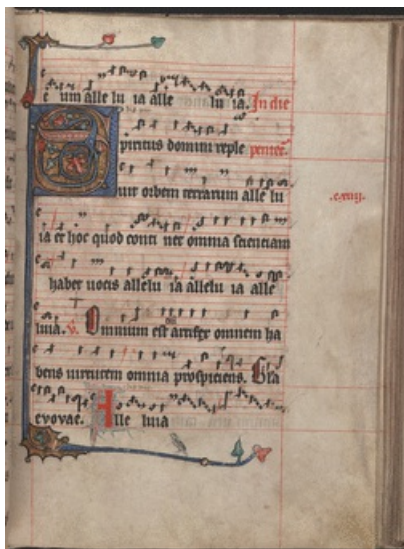 e um alle lu ia alle lu ia. In die
Spiritus domini reple pentec.
uit orbem terrarum alle lu
ia et hoc quod conti net omnia scienciam
habet uocis allelu ia allelu ia alle
luia. v. Omnium est artifex omnem ha
bens uirtutem omnia prospiciens. Gla
evovae. Alle luia
.cxiiij.